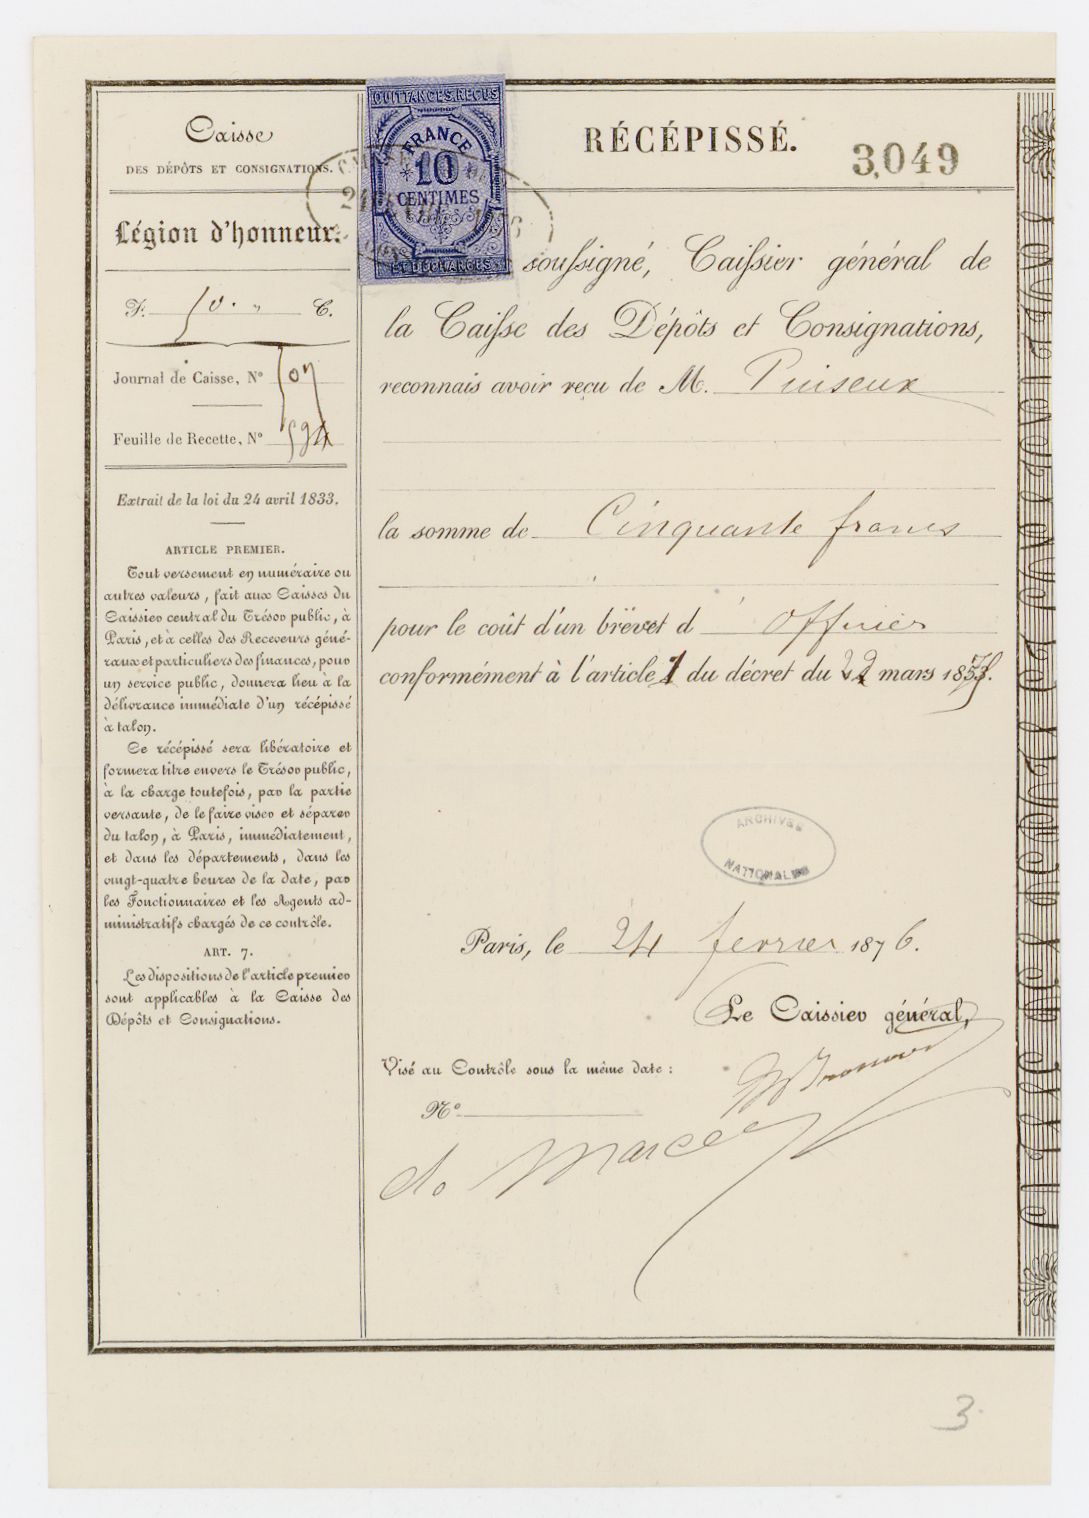 Caisse
DES DÉPÔTS ET CONSIGNATIONS.
Légion d'honneur.
F. 50. " C.
Journal de Caisse, N° 507
Feuille de Recette, N° 594
Extrait de la loi du 24 avril 1833.
ARTICLE PREMIER.
Tout versement en numéraire ou
autres valeurs, fait aux Caisses du
Caissier central du Trésor public, à
Paris, et à celles des Receveurs géné-
raux et particuliers des finances, pour
un service public, donnera lieu à la
délivrance immédiate d'un récépissé
à talon.
Ce récépissé sera libératoire et
formera titre envers le Trésor public,
à la charge toutefois, par la partie
versante, de le faire viser et séparer
du talon, à Paris, immédiatement,
et dans les départements, dans les
vingt-quatre heures de la date, par
les Fonctionnaires et les Agents ad-
ministratifs chargés de ce contrôle.
ART. 7.
Les dispositions de l'article premier
sont applicables à la Caisse des
Dépôts et Consignations.
QUITTANCES, REÇUS
FRANCE
10
CENTIMES
ET DÉCHARGES
RÉCÉPISSÉ.
3,049
soussigné, Caissier général de
la Caisse des Dépôts et Consignations,
reconnais avoir reçu de M. Puiseux
la somme de Cinquante francs
pour le coût d'un brevet d'Officier
conformément à l'article 1 du décret du 22 mars 1875.
ARCHIVES
NATIONALES
Paris, le 24 fevrier 1876.
Le Caissier général,
Visé au Contrôle sous la même date :
N°
de Marcey
3